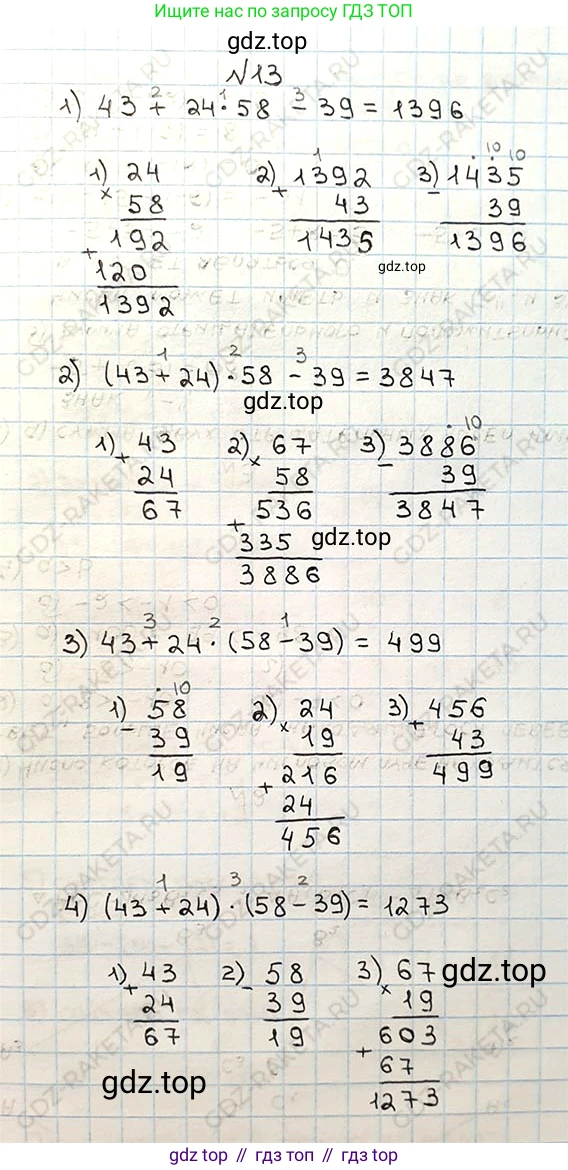 Больше решений по запросу ГДЗ ТОП
gdz.top
№13
1) 43 + 24 · 58 − 39 = 1396
2 1 3
1) 24 × 58 192 + 120 1392
2) 1392 + 43 1435
3) 1435 − 39 1396
1
10 10
gdz.top
2) (43 + 24) · 58 − 39 = 3847
1 2 3
gdz.top
1) 43 + 24 67
2) 67 × 58 536 + 335 3886
3) 3886 − 39 3847
10
gdz.top
3) 43 + 24 · (58 − 39) = 499
3 2 1
1) 58 − 39 19
10
2) 24 × 19 216 + 24 456
3) 456 + 43 499
4) (43 + 24) · (58 − 39) = 1273
1 3 2
1) 43 + 24 67
2) 58 − 39 19
3) 67 × 19 603 + 67 1273
gdz.top
gdz.top
gdz.top // гдз.топ // гдз топ
GDZ-RAKETA.RU